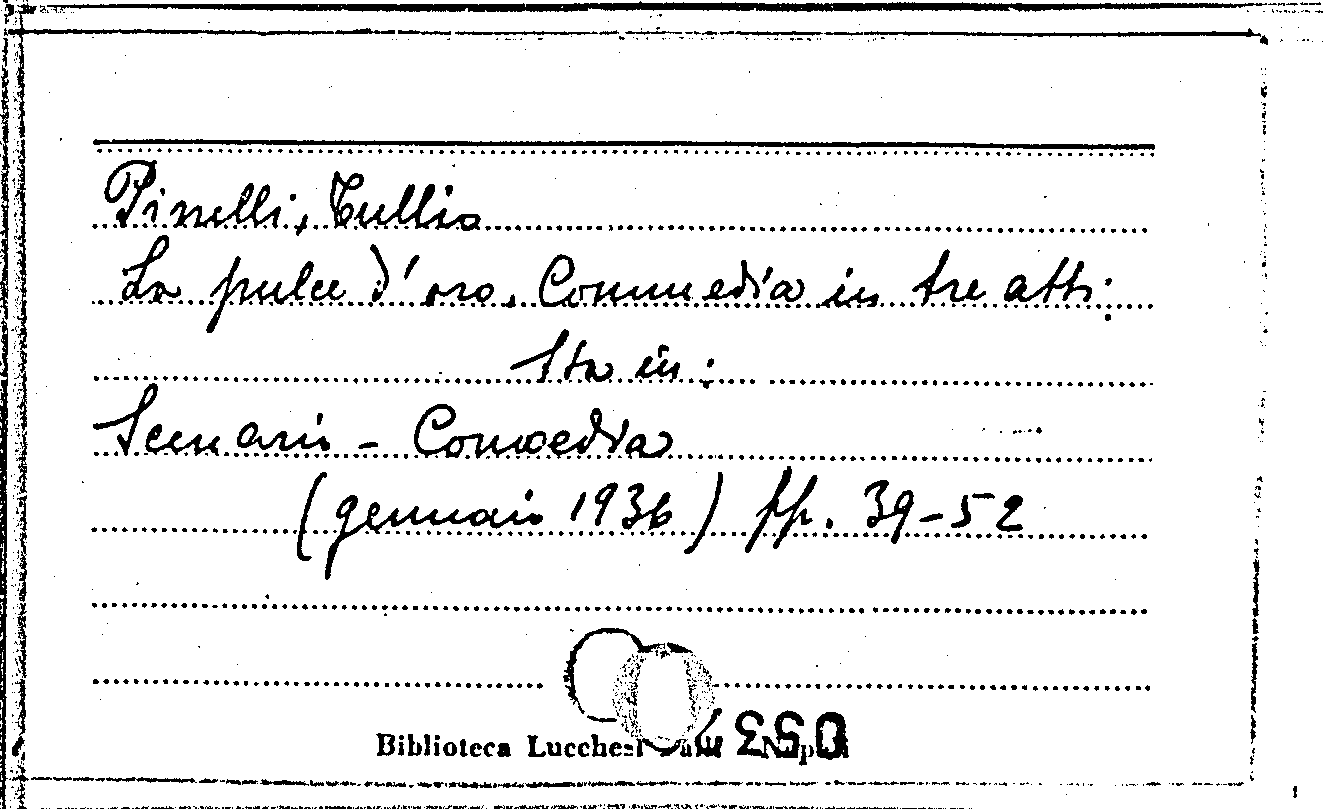 Pinelli, Tullio
La pulce d'oro. Commedia in tre atti.
Sta in:
Scenario - Comoedia
(gennaio 1936) pp. 39-52
Biblioteca Lucchesi Palli Napoli